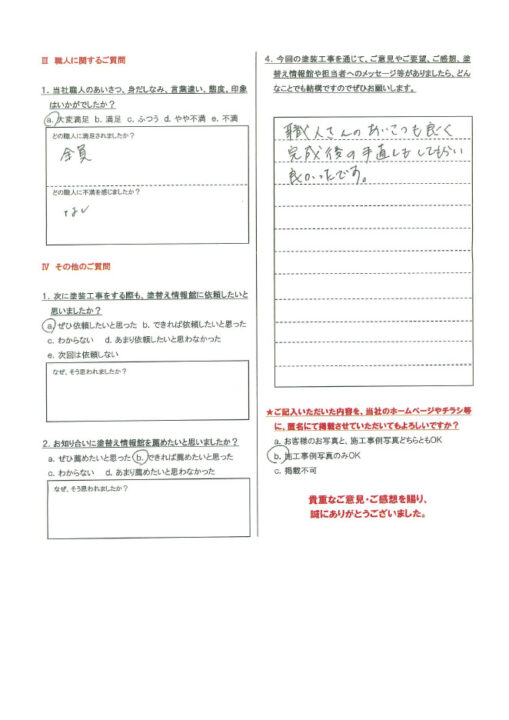 Ⅲ 職人に関するご質問
1. 当社職人のあいさつ、身だしなみ、言葉遣い、態度、印象
はいかがでしたか?
a. 大変満足 b. 満足 c. ふつう d. やや不満 e. 不満
どの職人に満足されましたか?
全員
どの職人に不満を感じましたか?
なし
Ⅳ その他のご質問
1. 次に塗装工事をする際も、塗替え情報館に依頼したいと
思いましたか?
a. ぜひ依頼したいと思った b. できれば依頼したいと思った
c. わからない d. あまり依頼したいと思わなかった
e. 次回は依頼しない
なぜ、そう思われましたか?
2. お知り合いに塗替え情報館を薦めたいと思いましたか?
a. ぜひ薦めたいと思った b. できれば薦めたいと思った
c. わからない d. あまり薦めたいと思わなかった
なぜ、そう思われましたか?
4. 今回の塗装工事を通じて、ご意見やご要望、ご感想、塗
替え情報館や担当者へのメッセージ等がありましたら、どん
なことでも結構ですのでぜひお願いします。
職人さんのあいさつも良く
完成後の手直しもしてもらい
良かったです。
★ご記入いただいた内容を、当社のホームページやチラシ等
に、匿名にて掲載させていただいてもよろしいですか?
a. お客様のお写真と、施工事例写真どちらともOK
b. 施工事例写真のみOK
c. 掲載不可
貴重なご意見・ご感想を賜り、
誠にありがとうございました。